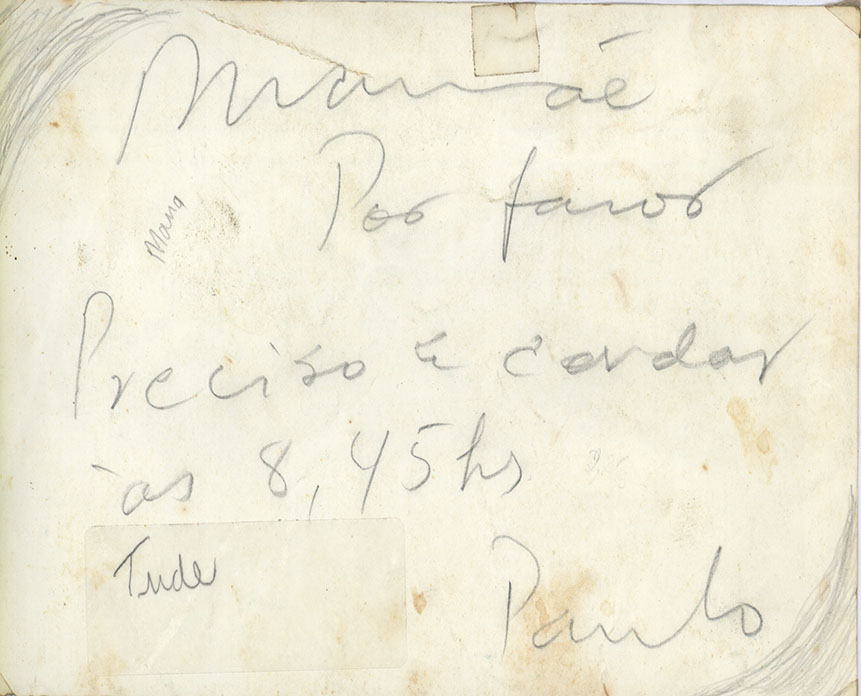 Mamãe
Por favor
Mana
Preciso a cordar
às 8,45hs
Tude
Paulo